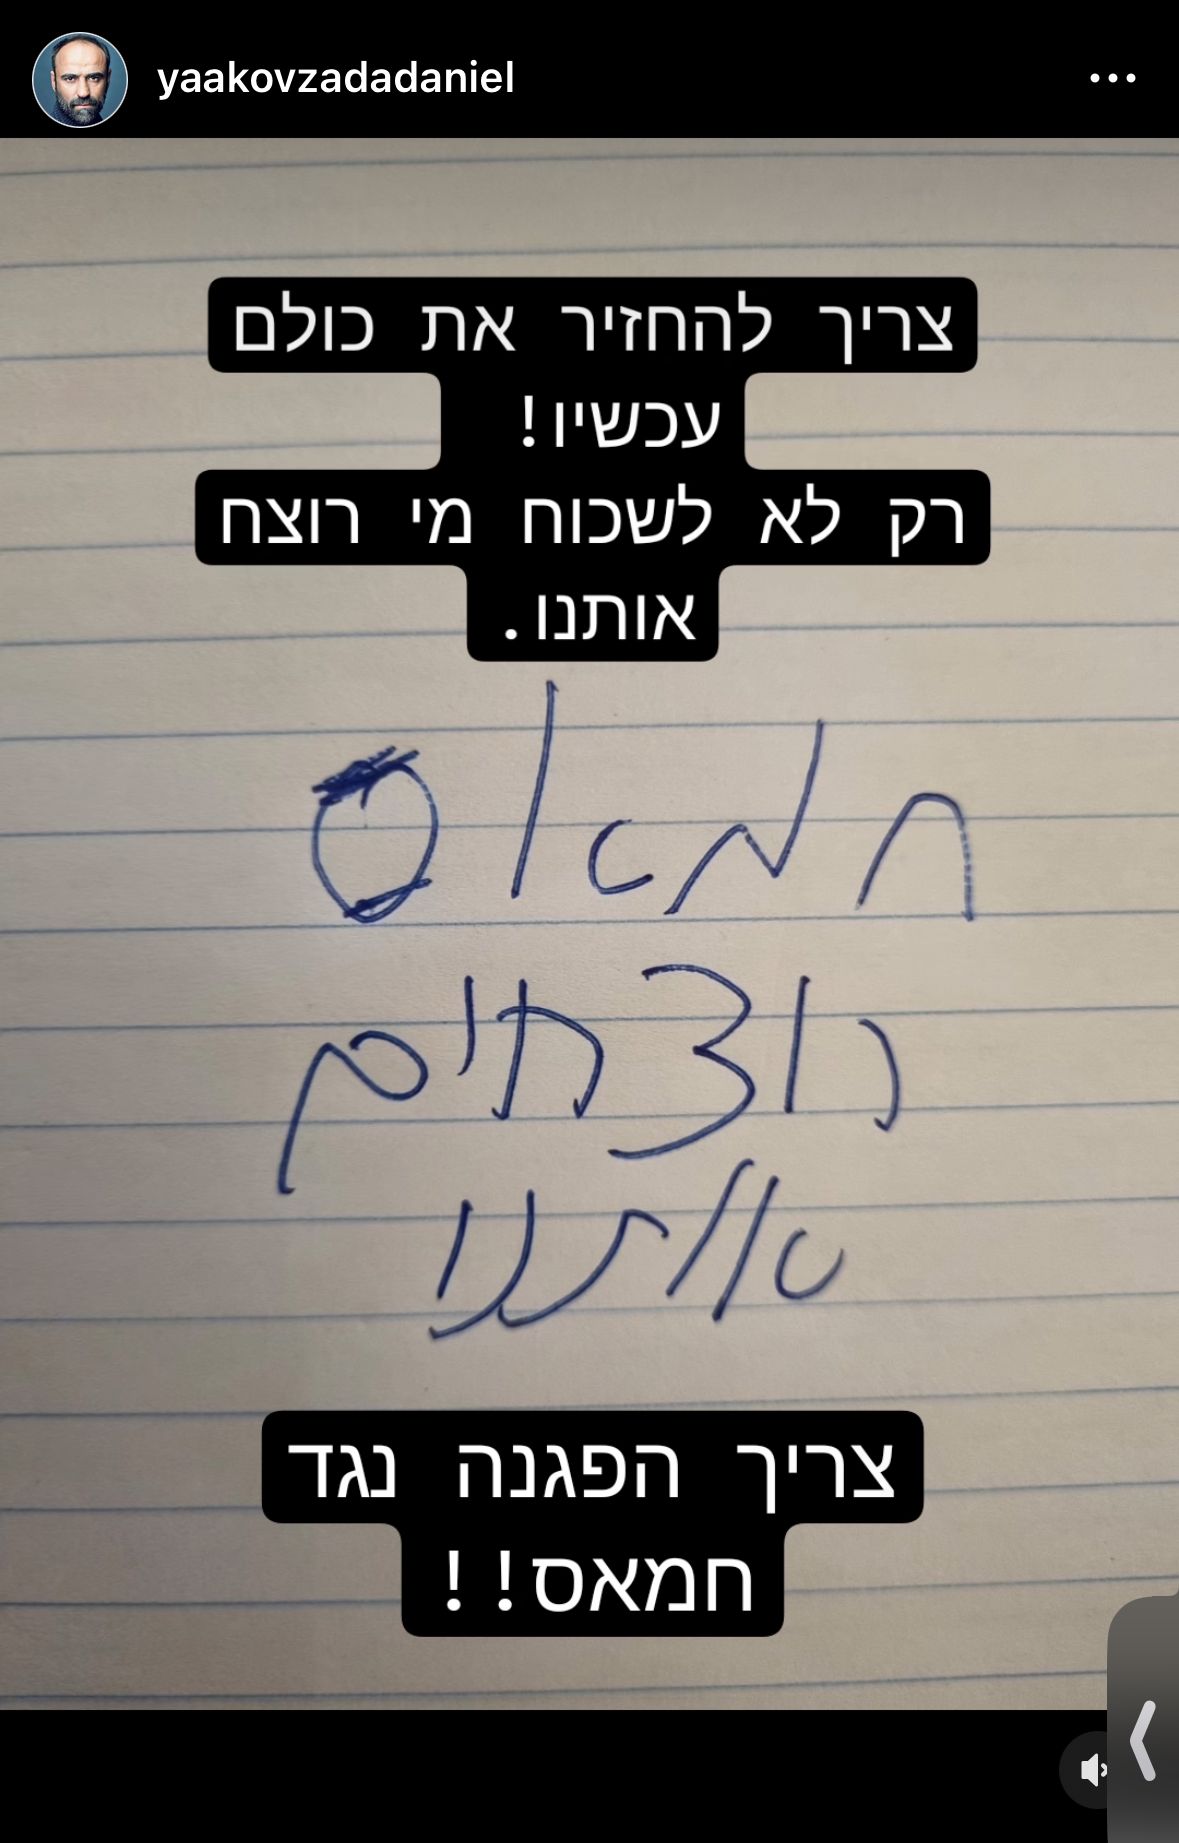 yaakovzadadaniel
צריך להחזיר את כולם
עכשיו!
רק לא לשכוח מי רוצח
אותנו.
חמאס
רוצחים
אותנו
צריך הפגנה נגד
חמאס!!